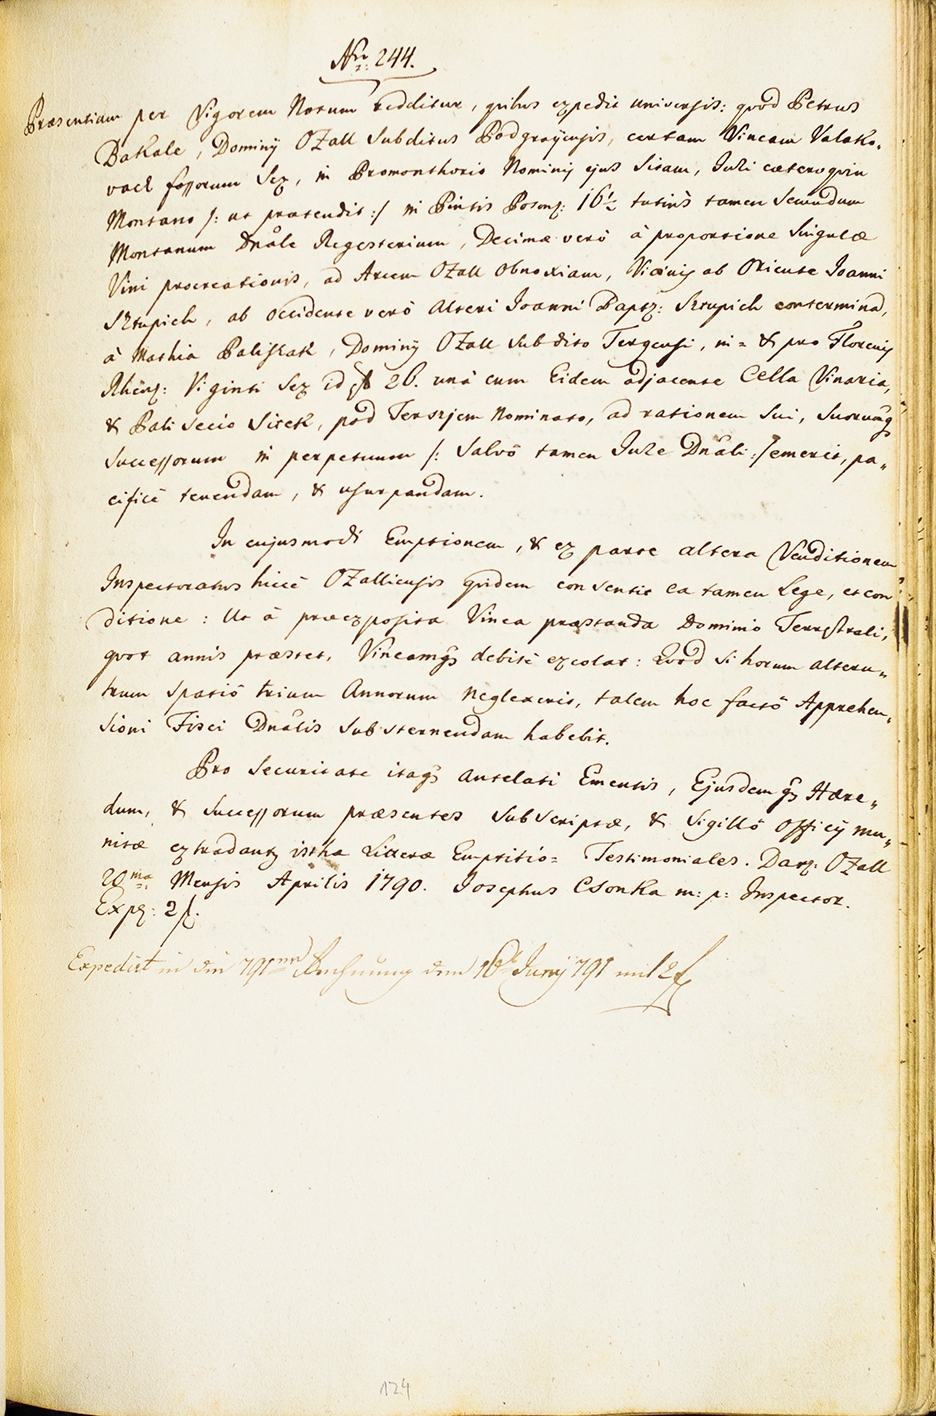 Nro: 244.
Præsentium per Vigorem Notum redditur, quibus expedit universis: quod Petrus
Bakale, Dominy Ozall subditus Podgrajensis, certam Vineam Valako„
vach fossorum Sex, in Promonthorio Nominis ejus sitam, Juri cæteroquin
Montano /: ut prætendit :/ in Pintis Poson: 16½ tutius tamen secundum
Montanum Dnãle Regesterium, Decimæ verò à proportione singulæ
Vini procreationis, ad Arcem Ozall obnoxiam, Vicinis ab Oriente Joanni
Sztupich, ab occidente verò alteri Joanni Bapt: Sztupich conterminã,
à Mathia Balishak, Dominy Ozall subdito Tergensi, in = & pro Florenis
Rhen: Viginti Sex id est 26. unà cum Eidem adjacente Cella Vinaria,
& Pali secio Sirek, pod Terszjem Nominato, ad rationem sui, suorumqs
successorum in perpetuum /: salvô tamen Jure Dnãli :/ emerit, pa„
cificè tenendam, & usurpandam.
In cujusmodi Emptionem, & ex parte altera Venditionem
Inspectoratus hicce Ozalliensis quidem consentit ea tamen Lege, et con
ditione: Ut à præexposita Vinea præstanda Dominio Terrestrali,
quot annis præstet, Vineamqs debitè excolat: Quod si horum alteru„
trum spatiô trium Annorum neglexerit, talem hoc factô Apprehen„
sioni Fisci Dnãlis substernendam habebit.
Pro securitate itaqs antelati Ementis, Ejusdemqs Hære„
dum, & successorum præsentes subscriptæ, & sigillô officij mu„
nitæ extradantur isthæ Litteræ Emptitio= Testimoniales. Dat: Ozall
20ma: Mensis Aprilis 1790. Josephus Csonka m: p: Inspector.
Exp: 2 f.
Expedirt in die 791 Rechnung den 16t Juny 791 mit 2 f
124